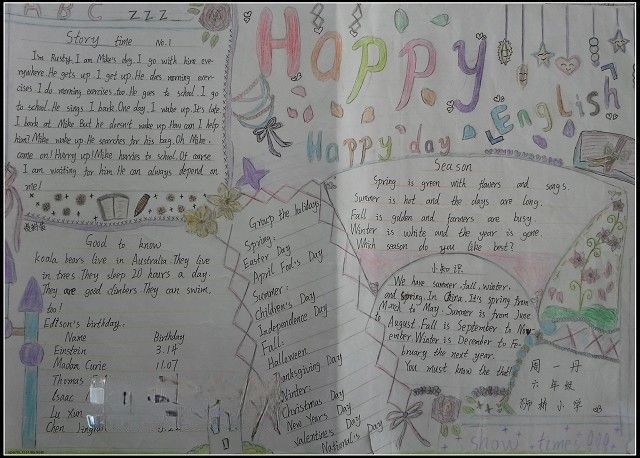 A B C
Z Z Z
Story time No.1
I'm Rusty. I am Mike's dog. I go with him eve-
rywhere. He gets up. I get up. He does morning exer-
cises. I do morning exercises, too. He goes to school. I go
to school. He sings. I bark. One day, I wake up. It's late.
I bark at Mike. But he doesn't wake up. How can I help
him? Mike wake up. He searches for his bag. Oh Mike,
come on! Hurry up! Mike hurries to school. Of course
I am waiting for him. He can always depend on
me!
Good to know
koala bears live in Australia. They live
in trees. They sleep 20 hours a day.
They are good climbers. They can swim,
too!
Edison's birthday:
Name Birthday
Einstein 3.14
Madam Curie 11.07
Thomas
Isaac
Lu Xun
Chen
Happy English
Happy day
Group the holidays
Spring:
Easter Day
April Fool's Day
Summer:
Children's Day
Independence Day
Fall:
Halloween
Thanksgiving Day
Winter:
Christmas Day
New Year's Day
Valentine's Day
National's Day
Season
Spring is green with flowers and songs.
Summer is hot and the days are long.
Fall is golden and farmers are busy.
Winter is white and the year is gone.
Which season do you like best?
小知识
We have summer, fall, winter,
and spring. In China. It's spring from
March to May. Summer is from June
to August. Fall is September to Nov-
ember. Winter is December to Fe-
bruary the next year.
You must know the that!
周一丹
六年级
柳林小学
show time